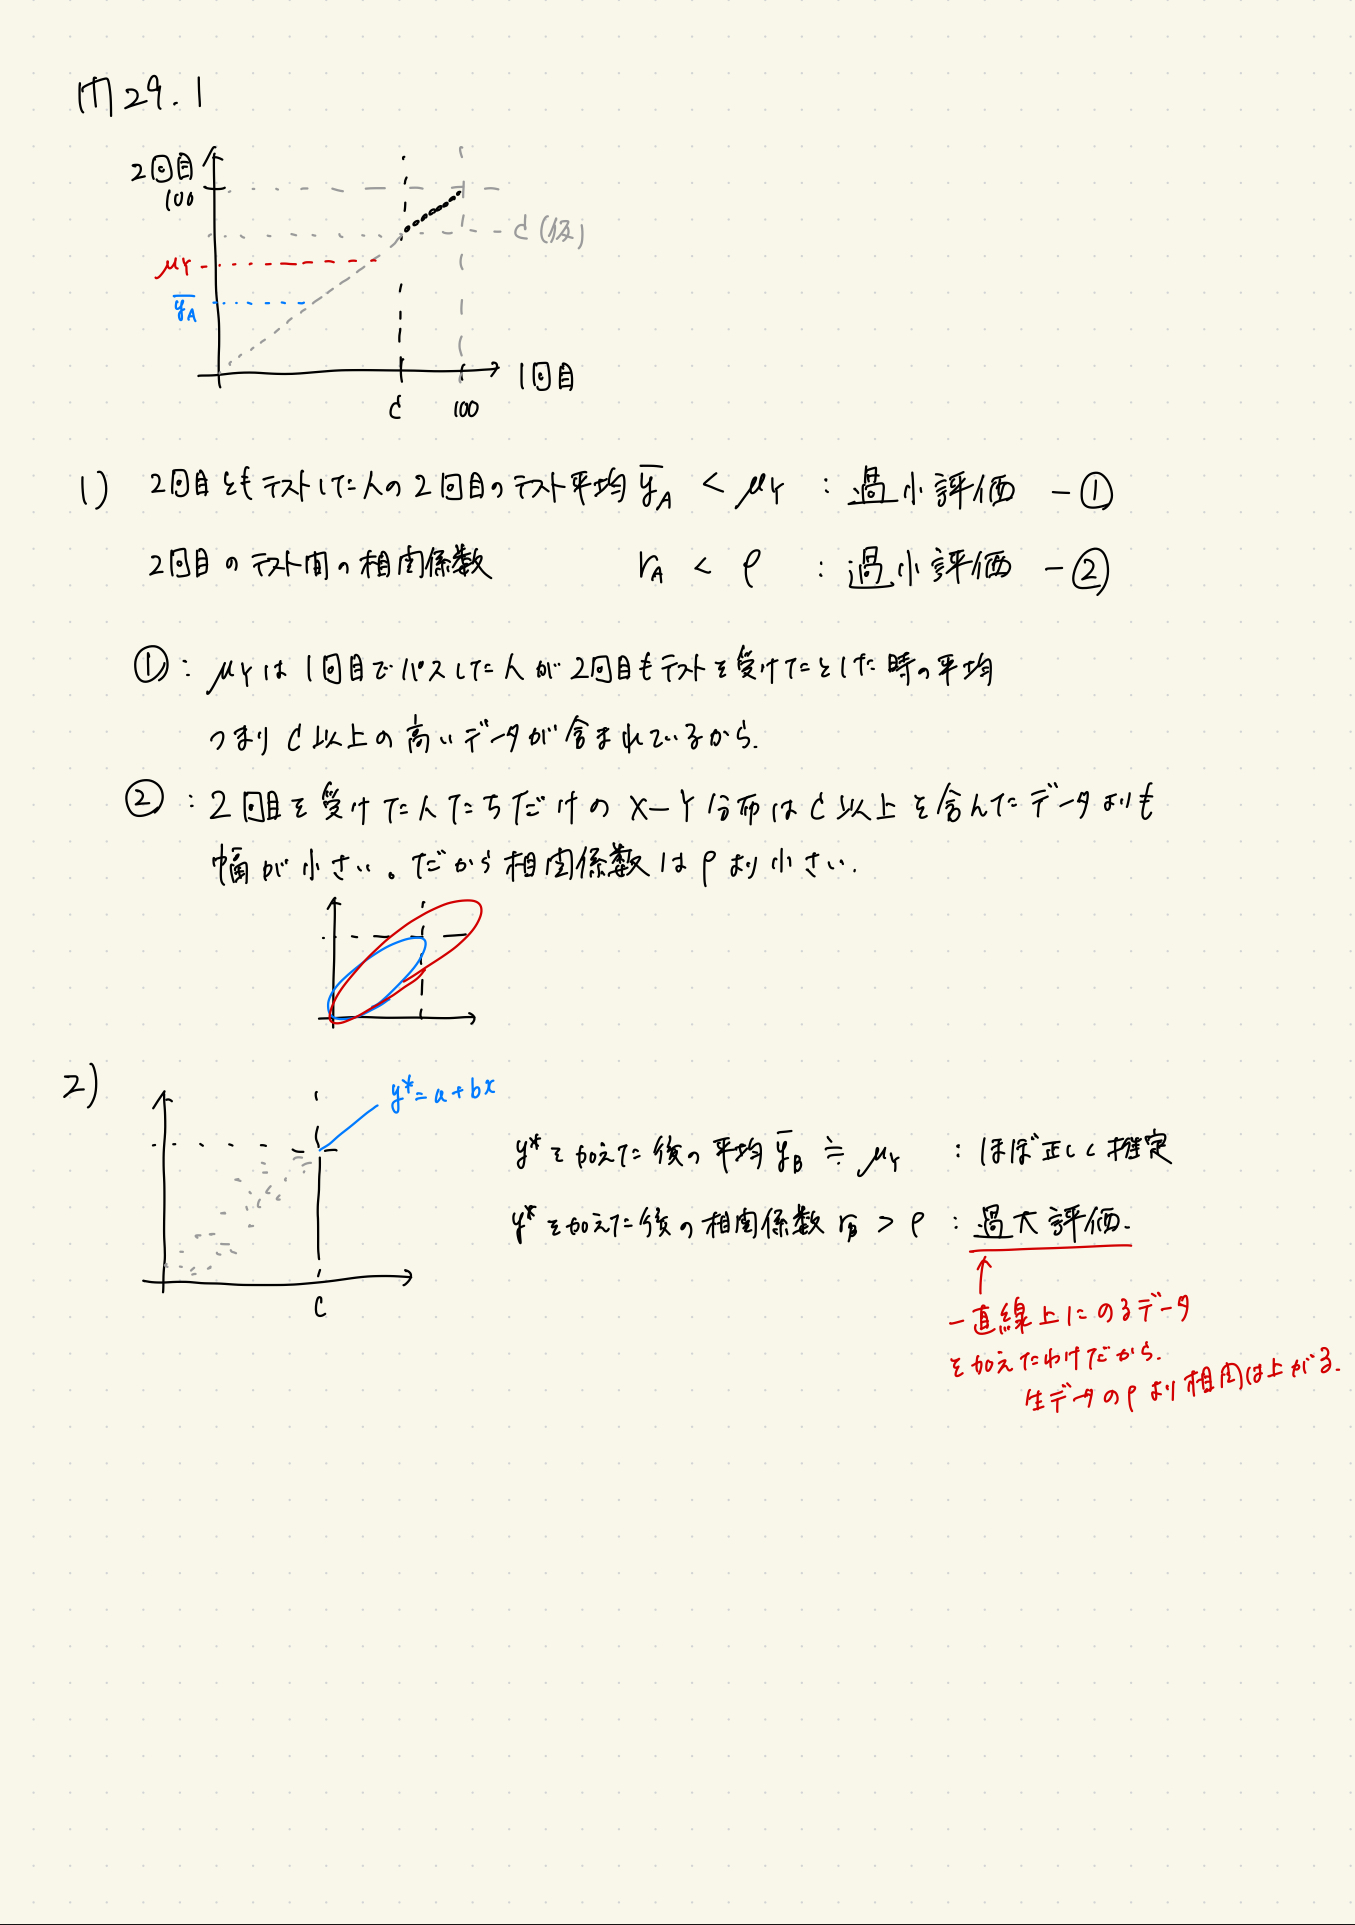 例29.1
2回目
100
C(仮)
μY
y̅A
1回目
C
100
1) 2回目ともテストした人の2回目のテスト平均 y̅A < μY : 過小評価 -①
2回目のテスト間の相関係数 rA < ρ : 過小評価 -②
①: μYは1回目でパスした人が2回目もテストを受けたとした時の平均
つまりC以上の高いデータが含まれているから.
②: 2回目を受けた人たちだけのX-Y分布はC以上を含んだデータよりも
幅が小さい。だから相関係数はρより小さい.
2)
y*=a+bx
C
y*を加えた後の平均 y̅B ≒ μY : ほぼ正しく推定
y*を加えた後の相関係数 rB > ρ : 過大評価.
一直線上にのるデータ
を加えたわけだから.
生データのρより相関は上がる.